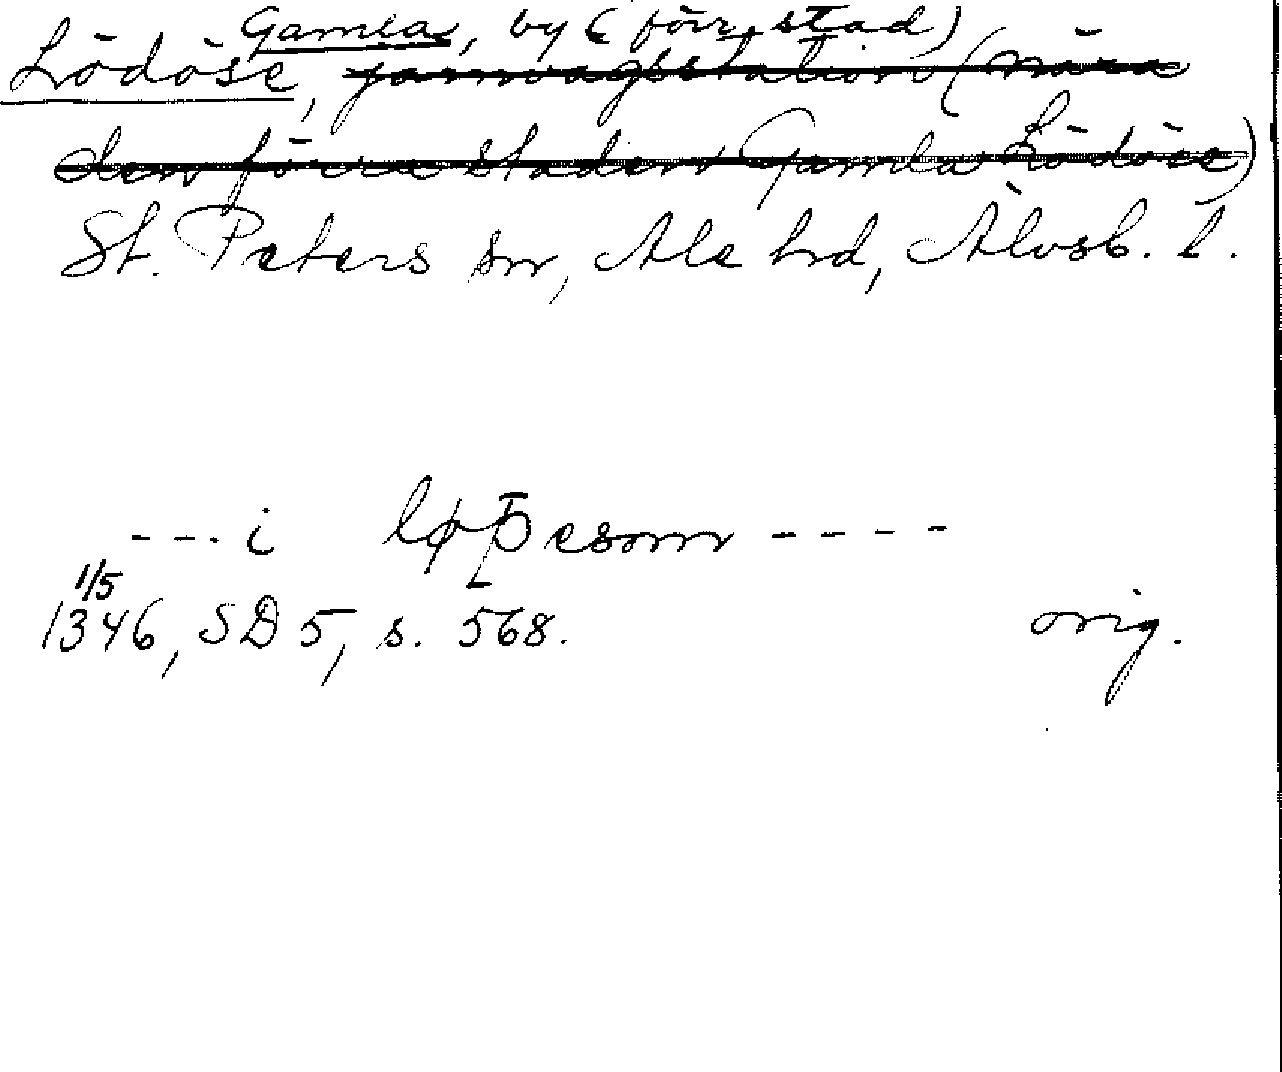 Gamla, by (förr stad)
Lödöse, järnvägsstation (nära
den förra staden Gamla Lödöse)
St. Peters sn, Ale hd, Älvsb. l.
---i løþesom ----
1/5
1346, SD 5, s. 568. orig.